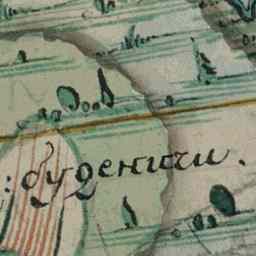 : буденичи.